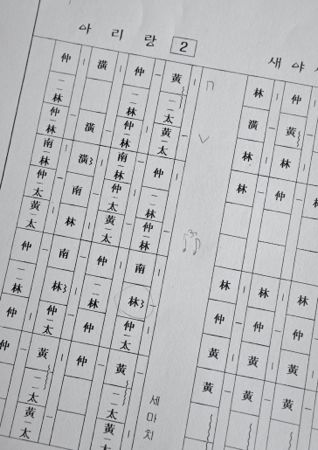 아 리 랑 2
새 야 새
林 仲 黃 黃
仲 黃 林 仲 林 仲 黃 黃
林 潢 林 林 林 仲 黃 黃
黃 太 黃 太 仲 林 仲 林 南 林 仲 太 黃 太 黃 太
仲 林 仲 林 南 林 仲 太 黃 太 仲 林 仲 仲
潢 潢 潢 南 林 南 林 仲 太 黃 太 黃 太
仲 林 仲 林 南 林 仲 太 黃 太 仲 林 仲 仲
세마치